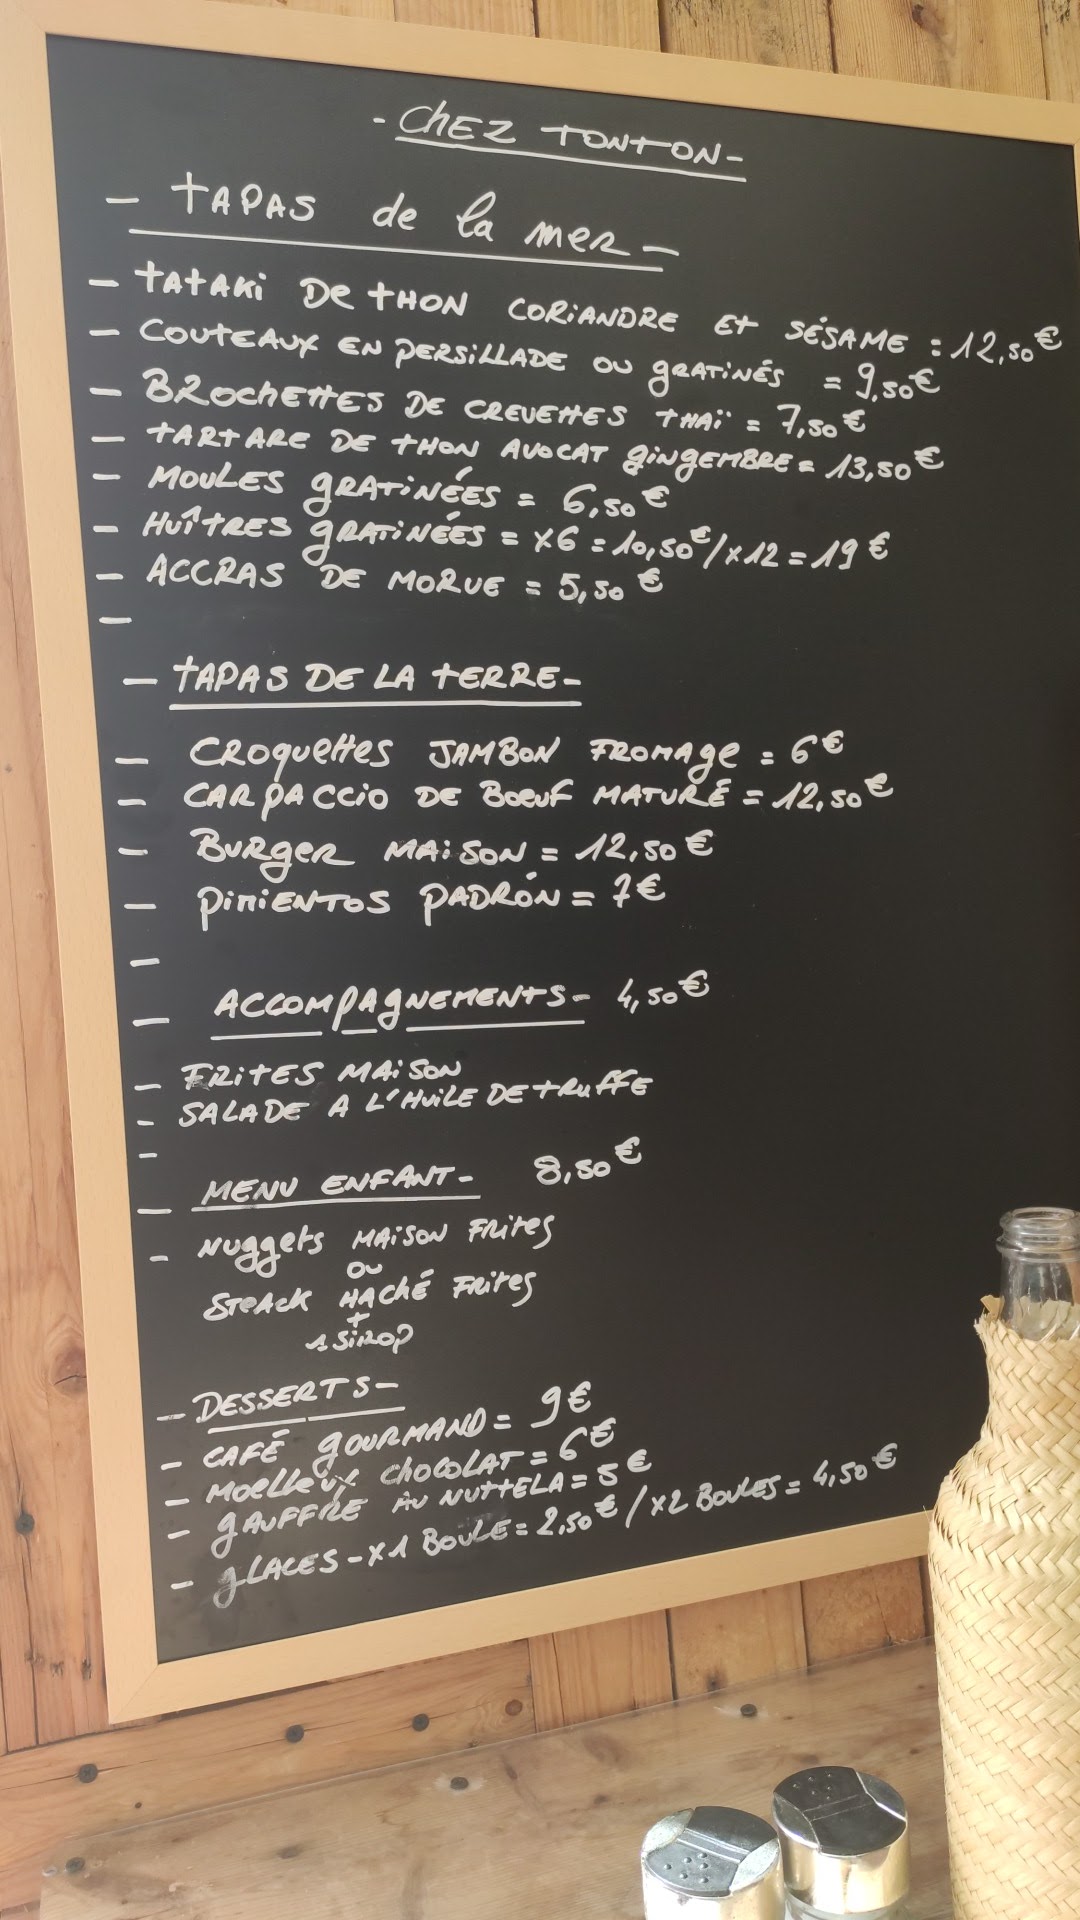 - CHEZ TONTON -
- TAPAS de la mer -
- TATAKI DE THON CORIANDRE ET SÉSAME = 12,50 €
- COUTEAUX EN PERSILLADE OU GRATINÉS = 9,50 €
- BROCHETTES DE CREVETTES THAÏ = 7,50 €
- TARTARE DE THON AVOCAT GINGEMBRE = 13,50 €
- MOULES GRATINÉES = 6,50 €
- HUÎTRES GRATINÉES = x6 = 10,50 € / x12 = 19 €
- ACCRAS DE MORUE = 5,50 €
-
- TAPAS DE LA TERRE -
- CROQUETTES JAMBON FROMAGE = 6 €
- CARPACCIO DE BOEUF MATURÉ = 12,50 €
- BURGER MAISON = 12,50 €
- PIMIENTOS PADRÓN = 7 €
-
- ACCOMPAGNEMENTS - 4,50 €
- FRITES MAISON
- SALADE A L'HUILE DE TRUFFE
-
- MENU ENFANT - 8,50 €
- NUGGETS MAISON FRITES
OU
STEACK HACHÉ FRITES
+
1 SIROP
- DESSERTS -
- CAFÉ GOURMAND = 9 €
- MOELLEUX CHOCOLAT = 6 €
- GAUFFRE AU NUTTELA = 5 €
- GLACES - x1 BOULE = 2,50 € / x2 BOULES = 4,50 €